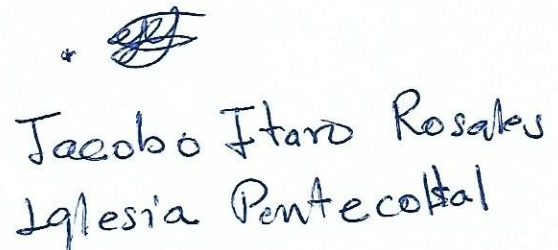 Jacobo Itaro Rosales
Iglesia Pentecostal